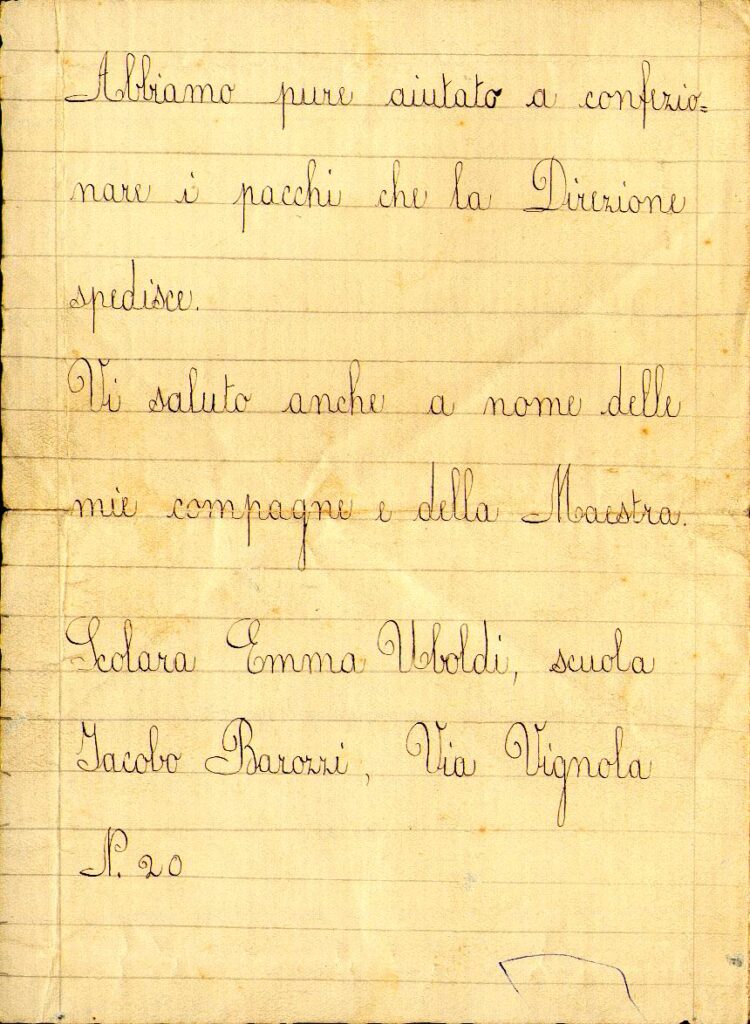 Abbiamo pure aiutato a confezio=
nare i pacchi che la Direzione
spedisce.
Vi saluto anche a nome delle
mie compagne e della Maestra.
Scolara Emma Uboldi, scuola
Jacobo Barozzi, Via Vignola
N. 20